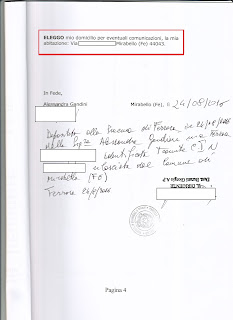 ELEGGO mio domicilio per eventuali comunicazioni, la mia
abitazione: Via Mirabello (Fe) 44043.
In Fede,
Alessandra Gandini Mirabello (Fe), lì 24/08/016
Depositata alla Procura di Ferrara in
dalla Alessandra Gandini
identificata Tramite C.I. N
rilasciata dal Comune di
Mirabello (FE)
Ferrara
IL DIRIGENTE
Pagina 4